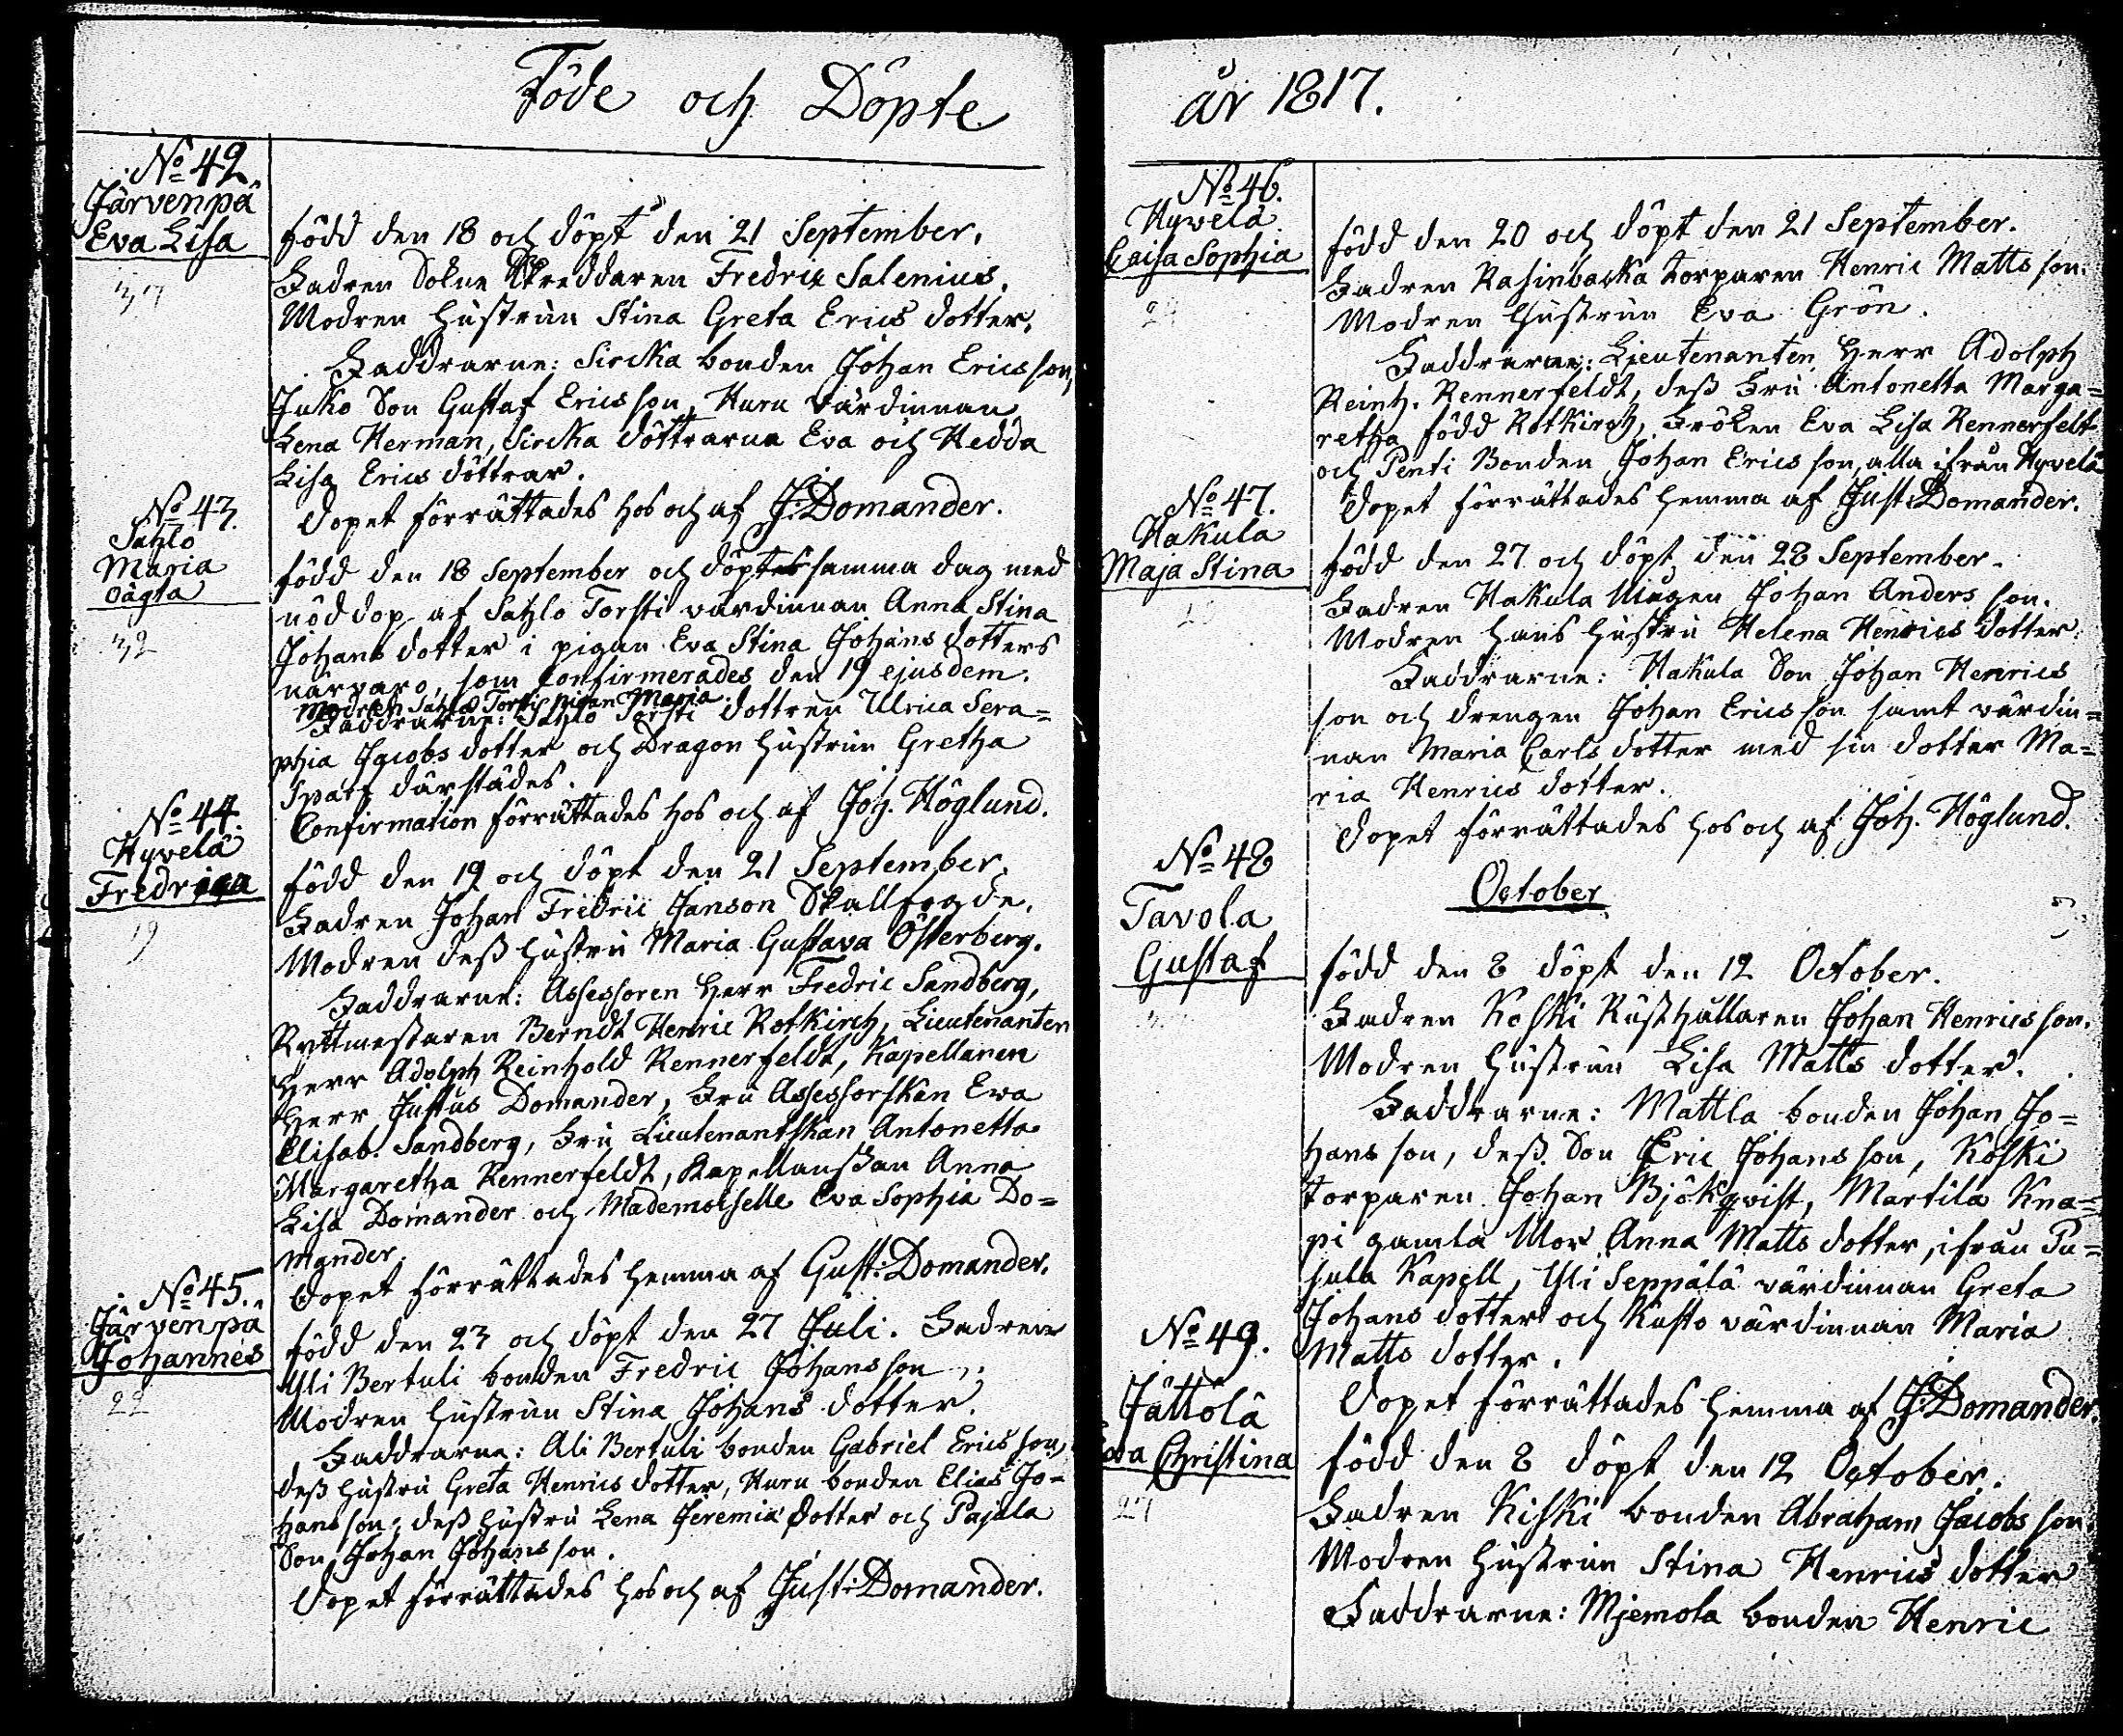 Föde och Döpte
No 42
Järvenpä
Eva Lisa
37
född den 18 och döpt den 21 September.
Fadren Sokne Skreddaren Fredric Salenius.
Modren hustrun Stina Greta Erics dotter.
Faddrarne: Sircka bonden Johan Ericsson,
Juko Son Gustaf Ericsson, Huru värdinnan
Lena Herman, Sircka döttrarna Eva och Hedda
Lisa Erics döttrar.
Dopet förrättades hos och af J: Domander.
No 43.
Sahlo
Maria
oägta
32
född den 18 September och döptes samma dag med
nöddop af Sahlo Torsti värdinnan Anna Stina
Johans dotter i pigan Eva Stina Johans dotters
närvaro, som Confirmerades den 19 ejusdem.
Modren Sahlo Torsti pigan Maria
Faddrarne: Sahlo Torsti dottren Ulrica Sera=
phia Jacobs dotter och Dragon hustrun Gretha
Sparf därstädes.
Confirmation förrättades hos och af Joh. Höglund.
No 44.
Hyvelä
Fredrica
19
född den 19 och döpt den 21 September.
Fadren Johan Fredric Janson Skallfogde.
Modren dess hustru Maria Gustava Österberg.
Faddrarne: Assessoren Herr Fredric Sandberg,
Ryttmestaren Berndt Henric Rotkirch, Lieutenanten
Herr Adolph Reinhold Rennerfeldt, Kapellanen
Herr Justus Domander, Fru Assessorskan Ewa
Elisab. Sandberg, Fru Lieutenantskan Antonetta
Margaretha Rennerfeldt, Kapellanskan Anna
Lisa Domander och Mademoiselle Eva Sophia Do=
mander.
Dopet förrättades hemma af Gust: Domander.
No 45.
Järvenpä
Johannes
22
född den 23 och döpt den 27 Juli. Fadren
Yli Bertuli bonden Fredric Johansson,
Modren hustrun Stina Johans dotter.
Faddrarne: Ali Bertuli bonden Gabriel Ericsson,
dess hustru Greta Henrics dotter, Huru bonden Elias Jo=
hansson, dess hustru Lena Jeremiæ dotter och Pajula
Son Johan Johansson.
Dopet förrättades hos och af Just: Domander.
år 1817.
No 46.
Hyvelä
Caisa Sophia
24
född den 20 och döpt den 21 September.
Fadren Rasinbacka torparen Henric Mattsson.
Modren hustrun Eva Grön.
Faddrarne: Lieutenanten Herr Adolph
Reinh. Rennerfeldt, dess Fru Antonetta Marga=
retha född Rotkirch, Fröken Eva Lisa Rennerfelt
och Penti Bonden Johan Ericsson, alla ifrån Hyvelä
Dopet förrättades hemma af Just: Domander.
No 47.
Hakula
Maja Stina
född den 27 och döpt den 28 September.
Fadren Hakula Mågen Johan Andersson.
Modren hans hustru Helena Henrics dotter.
Faddrarne: Hakula Son Johan Henrics
son och drengen Johan Ericsson samt värdin=
nan Maria Carls dotter med sin dotter Ma=
ria Henrics dotter.
Dopet förrättades hos och af Joh. Höglund.
No 48
Tavola
Gustaf
October
född den 8 döpt den 12 October.
Fadren Koski Rusthållaren Johan Henricsson.
Modren hustrun Lisa Matts dotter.
Faddrarne: Mattla bonden Johan Jo=
hansson, dess Son Eric Johansson, Koski
torparen Johan Björkqvist, Martila Kna=
pi gamla Mor Anna Matts dotter, ifrån Pu=
sula Kapell, Yli Seppälä värdinnan Greta
Johans dotter och Kusto värdinnan Maria
Matts dotter.
Dopet förrättades hemma af J: Domander.
No 49.
Jättölä
Eva Christina
27
född den 8 döpt den 12 October.
Fadren Kiski bonden Abraham Jacobsson.
Modren hustrun Stina Henrics dotter
Faddrarne: Mjemola bonden Henric